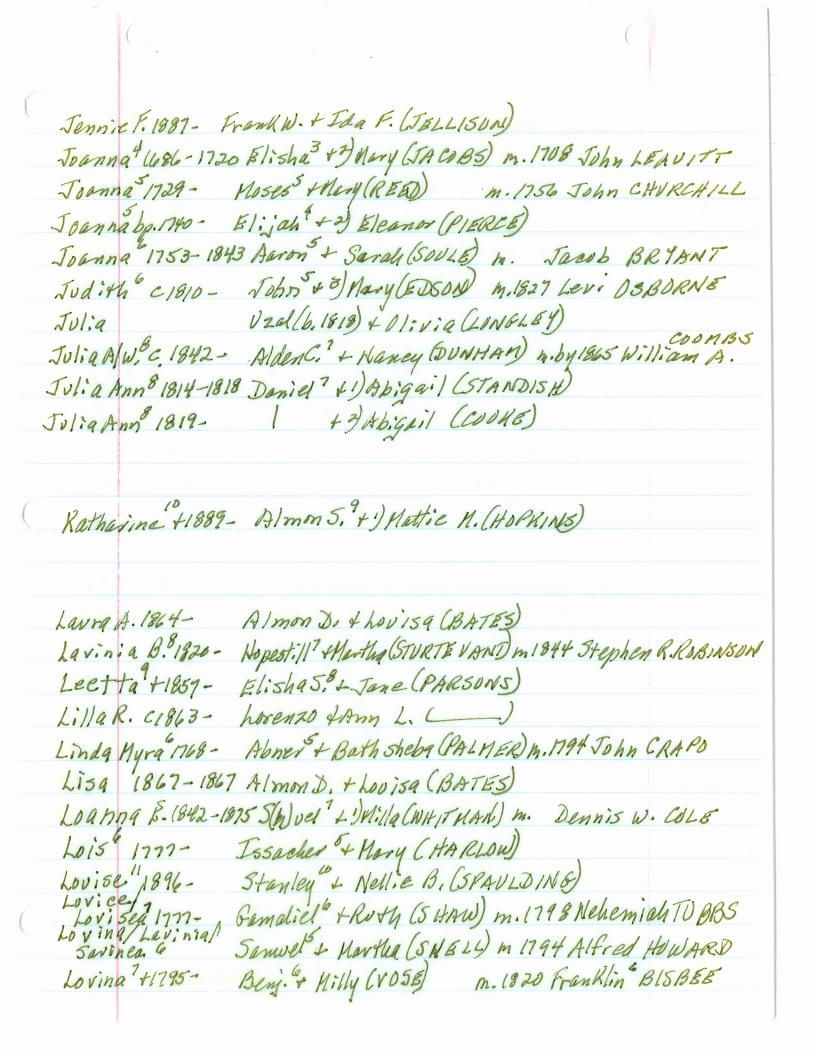 Jennie F. 1887- Frank W. + Ida F. (JELLISON)
Joanna⁴ 1686-1720 Elisha³ + 2) Mary (JACOBS) m. 1708 John LEAVITT
Joanna⁵ 1729- Moses⁵ + Mary (REED) m. 1756 John CHURCHILL
Joanna⁵ bp. 1740- Elijah⁴ + 2) Eleanor (PIERCE)
Joanna⁶ 1753-1843 Aaron⁵ + Sarah (SOULE) m. Jacob BRYANT
Judith⁶ c1810- John⁵ + 3) Mary (EDSON) m. 1827 Levi OSBORNE
Julia Uzal (b. 1818) + Olivia (LONGLEY)
COOMBS
Julia A/W.⁸ c. 1842- Alden C.⁷ + Nancy (DUNHAM) m. by 1865 William A.
Julia Ann⁸ 1814-1818 Daniel⁷ + 1) Abigail (STANDISH)
Julia Ann⁸ 1819- | + 2) Abigail (COOKE)
Katharine¹⁰ +1889- Almon S.⁹ + 1) Mattie M. (HOPKINS)
Laura A. 1864- Almon D. + Lovisa (BATES)
Lavinia B.⁸ 1820- Hopestill⁷ + Martha (STURTEVANT) m 1844 Stephen R. ROBINSON
Leetta⁹ +1857- Elisha S.⁸ + Jane (PARSONS)
Lilla R. c1863- Lorenzo + Ann L. (______)
Linda Myra⁶ 1768- Abner⁵ + Bathsheba (PALMER) m. 1794 John CRAPO
Lisa 1867-1867 Almon D. + Lovisa (BATES)
Loanna E. 1842-1875 S(h)uel⁷ + 1) Milla (WHITMAN) m. Dennis W. COLE
Lois⁶ 1777- Issacher⁵ + Mary (HARLOW)
Louise¹¹ 1896- Stanley¹⁰ + Nellie B. (SPAULDING)
Lovice/
Lovisea⁷ 1777- Gamaliel⁶ + Ruth (SHAW) m. 1798 Nehemiah TUBBS
Lovina/Lavinia/
Savinea⁶ Samuel⁵ + Martha (SNELL) m 1794 Alfred HOWARD
Lovina⁷ +1795- Benj.⁶ + Milly (VOSE) m. 1820 Franklin⁶ BISBEE